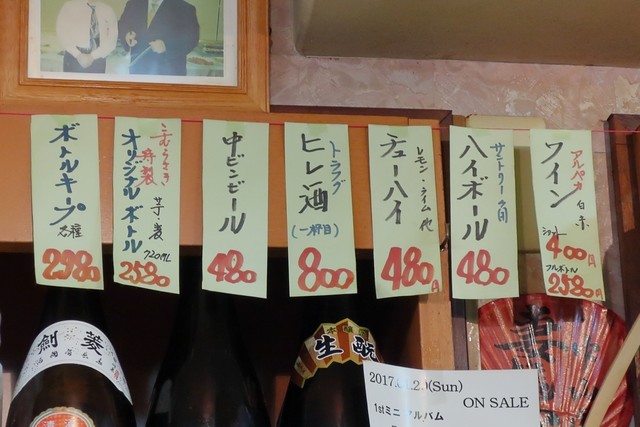 ボトルキープ
各種
2980
こむらさき
特製
オリジナルボトル
芋・麦
720ML
2580
中ビンビール
480
トラフグ
ヒレ酒
(一杯目)
800
チューハイ
レモン・ライム他
480円
ハイボール
サントリー角
480
ワイン
アルパカ
白 赤
ショット
400円
フルボトル
2580円
剣菱
生酛
(Sun)
ON SALE
1stミニアルバム